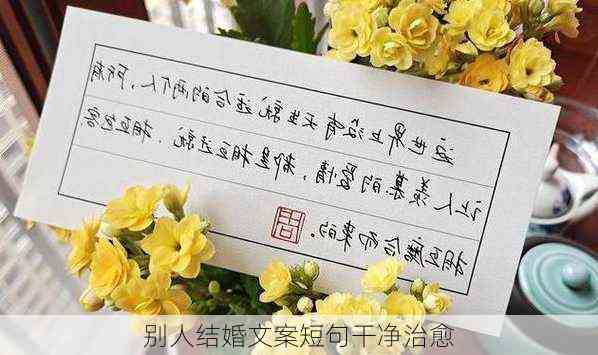 这世界上没有天生就适合的两个人,所有
让人羡慕的爱情,都是相互迁就、相互包容、
相互磨合来的。
别人结婚文案短句干净治愈